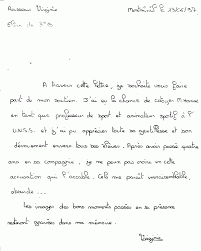 Rousseau Virginie
Montreuil le 13/05/97
A travers cette lettre, je souhaite vous faire
part de mon soutien. J'ai eu la chance de cotoyer M
en tant que professeur de sport et animateur sportif à l'
U.N.S.S. et j'ai pu apprécier toute sa gentillesse et son
dévouement envers tous ses élèves. Après avoir passé quatre
ans en sa compagnie, je ne peux pas croire en cette
accusation qui l'accable. Cela me paraît invraisemblable,
absurde ...
Les images des bons moments passés en sa présence
resteront gravées dans ma mémoire.
Virginie